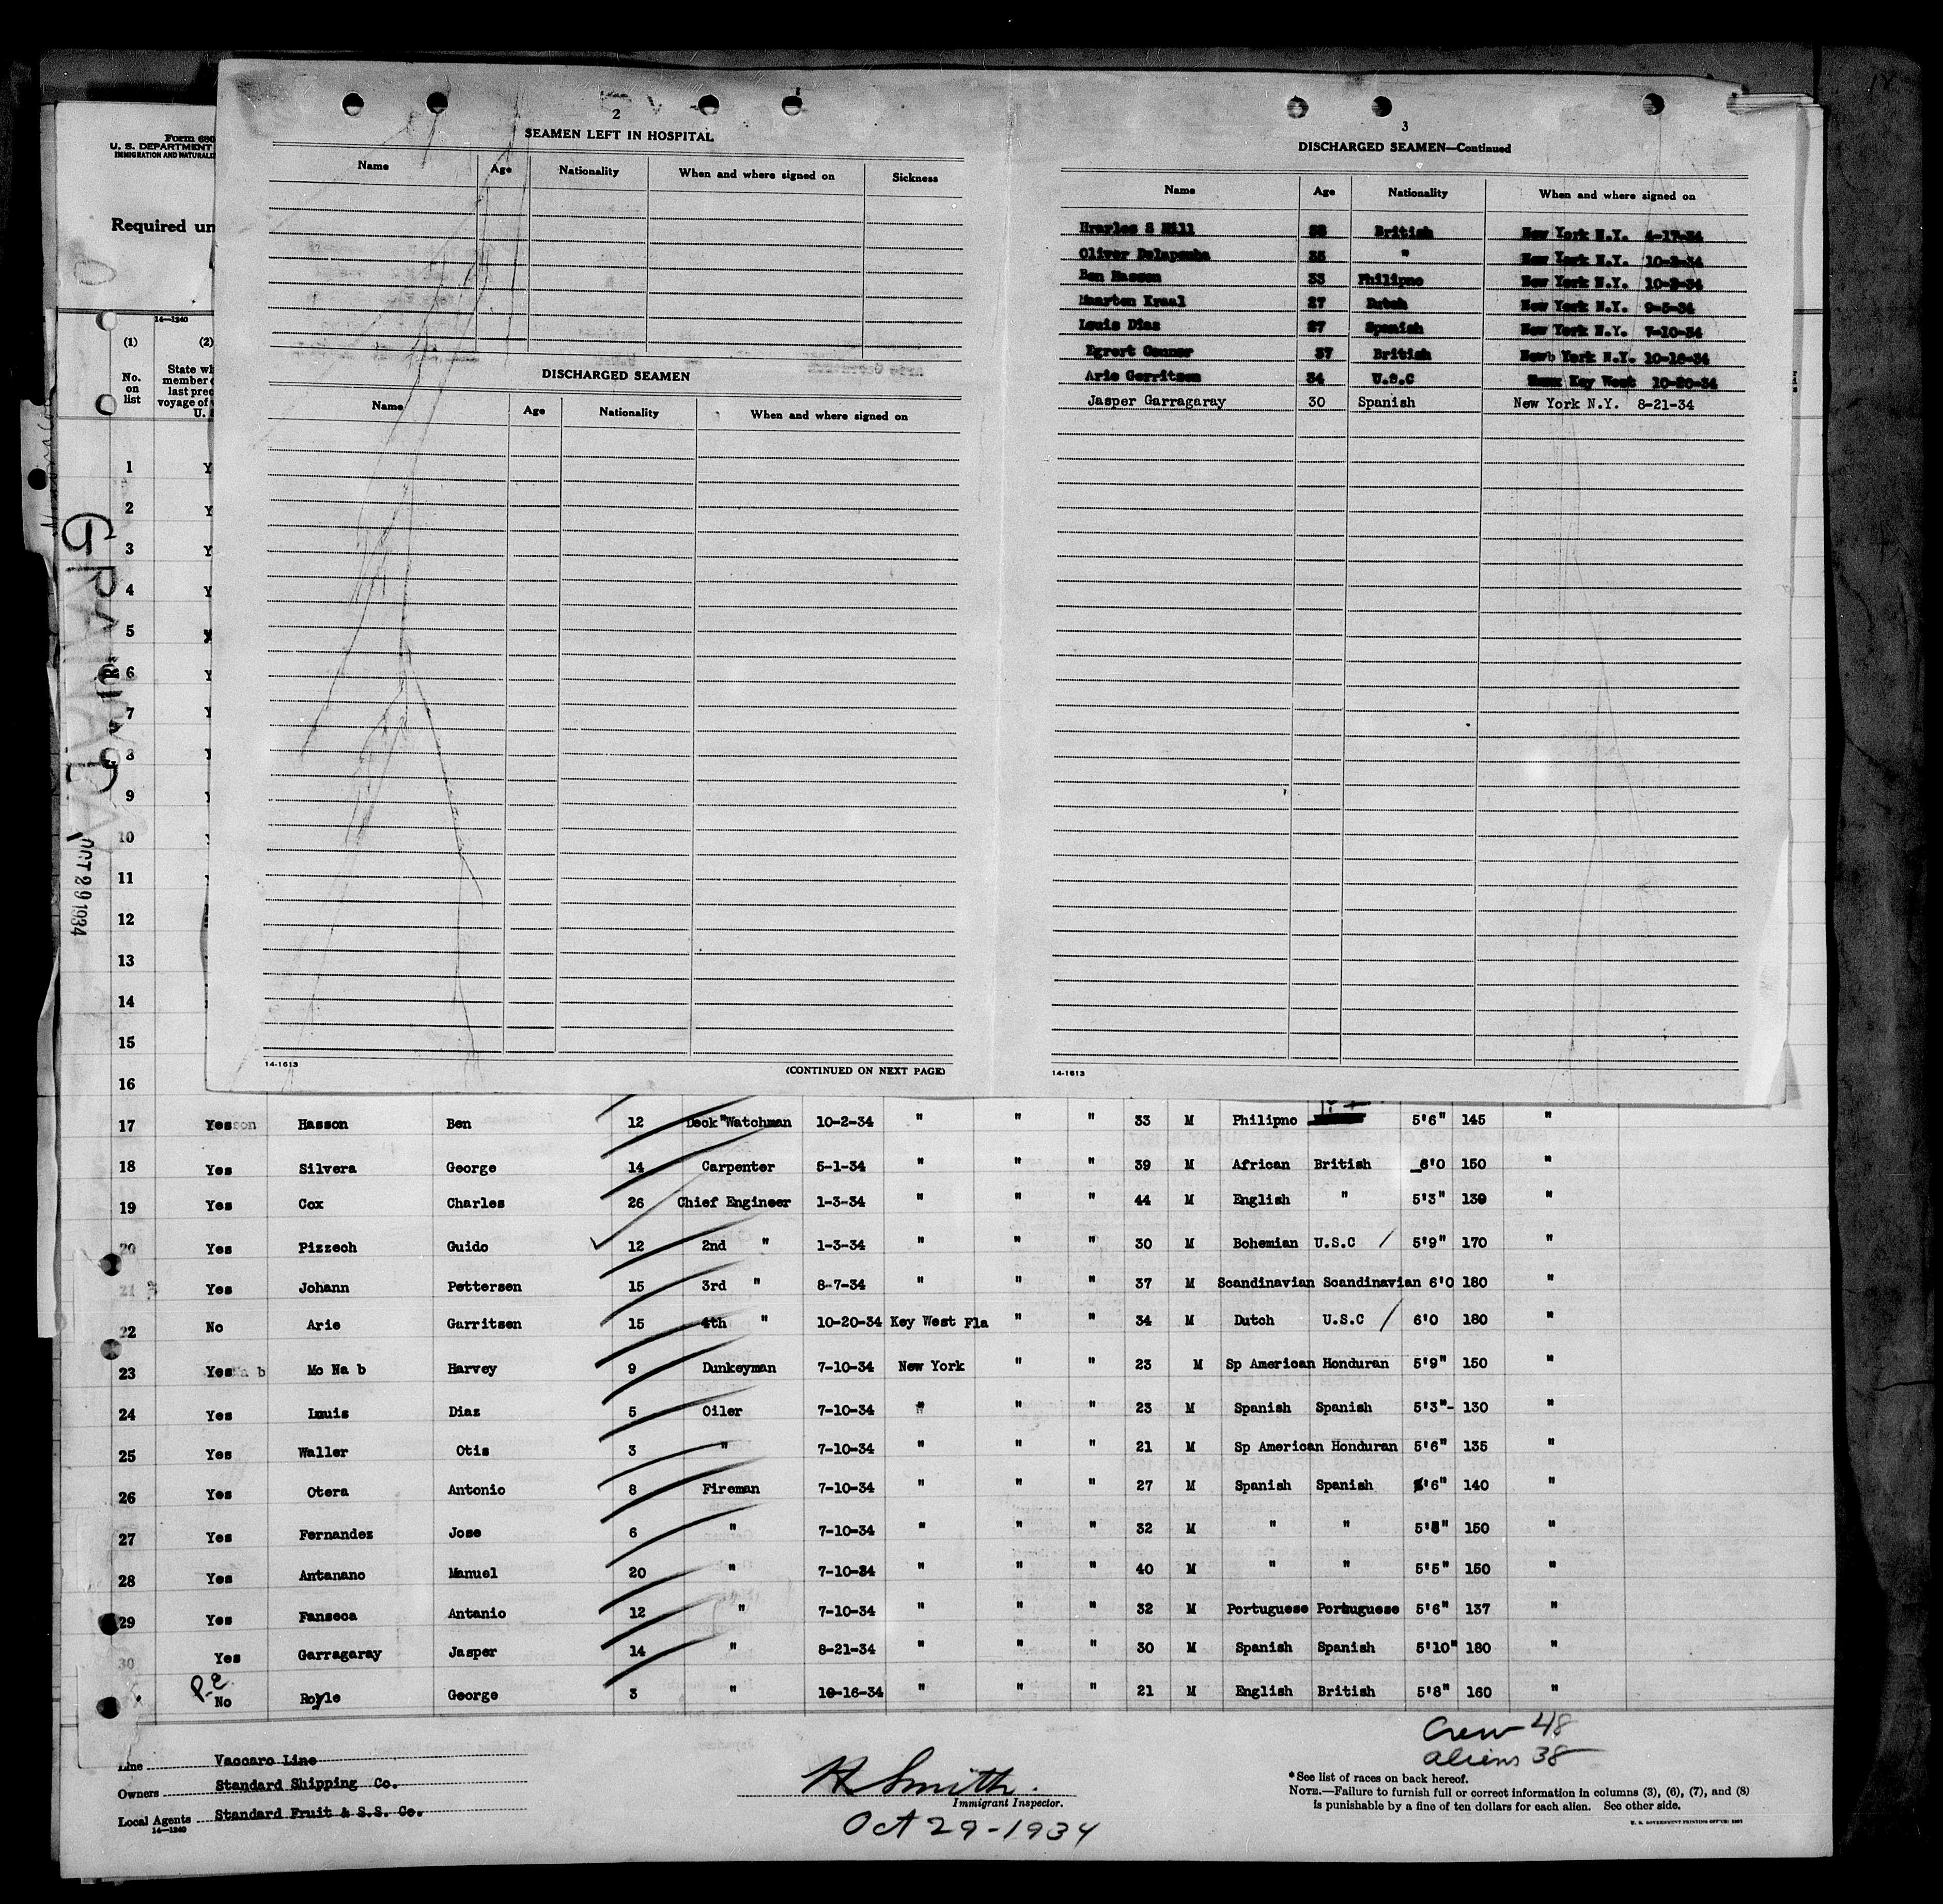 2
SEAMEN LEFT IN HOSPITAL
Name Age Nationality When and where signed on Sickness
DISCHARGED SEAMEN
Name Age Nationality When and where signed on
14-1613
(CONTINUED ON NEXT PAGE)
3
DISCHARGED SEAMEN—Continued
Name Age Nationality When and where signed on
Hrarles S Hill British New York N.Y. 4-17-34
Oliver Delapenha 35 " New York N.Y. 10-2-34
Ben Hasson 33 Philipno New York N.Y. 10-2-34
Maarten Kraal 27 Dutch New York N.Y. 9-5-34
Louis Diaz 27 Spanish New York N.Y. 7-10-34
Egrert Connor 37 British New York N.Y. 10-16-34
Arie Gerritsen 34 U.S.C Key West 10-20-34
Jasper Garragaray 30 Spanish New York N.Y. 8-21-34
14-1613
Form 680
U. S. DEPARTMENT
IMMIGRATION AND NATURALIZ
Required un
14—1240
(1) (2)
No. on list
State wh
member o
last prec
voyage of
U. S
GRANADA
OCT 29 1934
1 Y
2 Y
3 Y
4 Y
5
6 Y
7 Y
8
9
10
11
12
13
14
15
16
17 Yes Hasson Ben 12 Deck "Watchman 10-2-34 " " " 33 M Philipno 5'6" 145 "
18 Yes Silvera George 14 Carpenter 5-1-34 " " " 39 M African British 6'0 150 "
19 Yes Cox Charles 26 Chief Engineer 1-3-34 " " " 44 M English " 5'3" 139 "
20 Yes Pizzech Guido 12 2nd " 1-3-34 " " " 30 M Bohemian U.S.C / 5'9" 170 "
21 Yes Johann Pettersen 15 3rd " 8-7-34 " " " 37 M Scandinavian Scandinavian 6'0 180 "
22 No Arie Garritsen 15 4th " 10-20-34 Key West Fla " " 34 M Dutch U.S.C / 6'0 180 "
23 Yes Mc Na b Harvey 9 Dunkeyman 7-10-34 New York " " 23 M Sp American Honduran 5'9" 150 "
24 Yes Louis Diaz 5 Oiler 7-10-34 " " " 23 M Spanish Spanish 5'3"- 130 "
25 Yes Waller Otis 3 " 7-10-34 " " " 21 M Sp American Honduran 5'6" 135 "
26 Yes Otera Antonio 8 Fireman 7-10-34 " " " 27 M Spanish Spanish 5'6" 140 "
27 Yes Fernandez Jose 6 " 7-10-34 " " " 32 M " " 5'8" 150 "
28 Yes Antanano Manuel 20 " 7-10-34 " " " 40 M " " 5'5" 150 "
29 Yes Fanseca Antanio 12 " 7-10-34 " " " 32 M Portuguese Portuguese 5'6" 137 "
30 Yes Garragaray Jasper 14 " 8-21-34 " " " 30 M Spanish Spanish 5'10" 180 "
P-E
No Royle George 3 " 10-16-34 " " " 21 M English British 5'8" 160 "
Crew 48
aliens 38
Line Vaccaro Line
Owners Standard Shipping Co.
Local Agents Standard Fruit & S.S. Co.
14—1240
H Smith.
Immigrant Inspector.
Oct 29-1934
*See list of races on back hereof.
NOTE.—Failure to furnish full or correct information in columns (3), (6), (7), and (8)
is punishable by a fine of ten dollars for each alien. See other side.